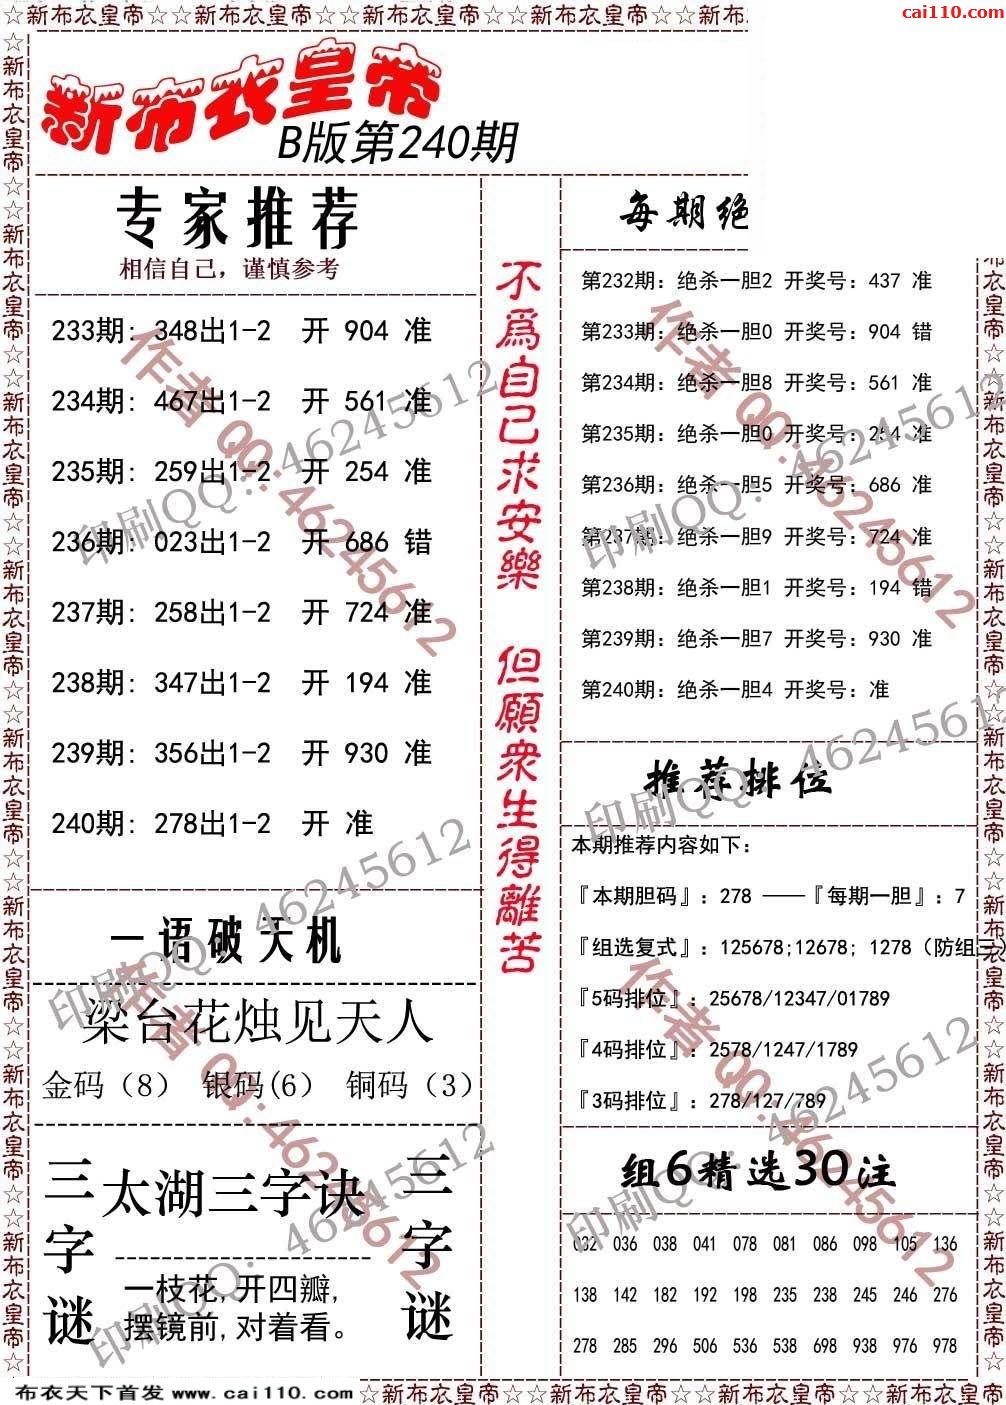 ☆新布衣皇帝☆☆新布衣皇帝☆☆新布衣皇帝☆☆新布衣皇帝☆☆新布
cai110.com
新布衣皇帝
B版第240期
专家推荐
相信自己，谨慎参考
233期: 348出1-2 开 904 准
234期: 467出1-2 开 561 准
235期: 259出1-2 开 254 准
236期: 023出1-2 开 686 错
237期: 258出1-2 开 724 准
238期: 347出1-2 开 194 准
239期: 356出1-2 开 930 准
240期: 278出1-2 开 准
一语破天机
梁台花烛见天人
金码（8） 银码(6） 铜码（3）
三字谜
太湖三字诀
一枝花,开四瓣,
摆镜前,对着看。
三字谜
不為自己求安樂 但願衆生得離苦
每期绝
第232期: 绝杀一胆2 开奖号: 437 准
第233期: 绝杀一胆0 开奖号: 904 错
第234期: 绝杀一胆8 开奖号: 561 准
第235期: 绝杀一胆0 开奖号: 254 准
第236期: 绝杀一胆5 开奖号: 686 准
第237期: 绝杀一胆9 开奖号: 724 准
第238期: 绝杀一胆1 开奖号: 194 错
第239期: 绝杀一胆7 开奖号: 930 准
第240期: 绝杀一胆4 开奖号: 准
推荐排位
本期推荐内容如下:
『本期胆码』: 278 ——『每期一胆』: 7
『组选复式』: 125678;12678; 1278（防组三）
『5码排位』: 25678/12347/01789
『4码排位』: 2578/1247/1789
『3码排位』: 278/127/789
组6精选30注
032 036 038 041 078 081 086 098 105 136
138 142 182 192 198 235 238 245 246 276
278 285 296 506 536 538 698 938 976 978
作者QQ:46245612
印刷QQ: 46245612
作者QQ:46245612
印刷QQ: 46245612
印刷QQ: 46245612
印刷QQ: 46245612
作者QQ:46245612
印刷QQ: 46245612
作者QQ:46245612
印刷QQ: 46245612
☆新布衣皇帝☆☆新布衣皇帝☆☆新布衣皇帝☆☆新布衣皇帝☆☆新布衣皇帝☆☆新布衣皇帝☆☆新布衣皇帝☆☆新布衣皇帝☆
衣皇帝☆☆新布衣皇帝☆☆新布衣皇帝☆☆新布衣皇帝☆☆新布衣皇帝☆☆新布衣皇帝☆☆新布衣皇帝☆
布衣天下首发 www.cai110.com
☆新布衣皇帝☆☆新布衣皇帝☆☆新布衣皇帝☆☆新布衣皇帝☆